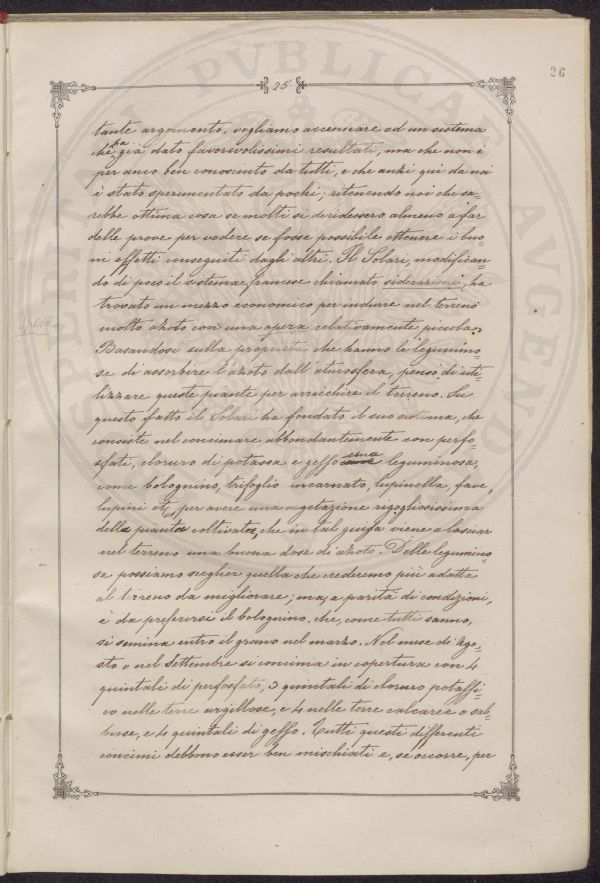 26
25
tante argomento, vogliamo accennare ad un sistema
che ha già dato favorevolissimi resultati, ma che non è
per anco ben conosciuto da tutti, e che anzi qui da noi
è stato sperimentato da pochi; ritenendo noi che sa-
rebbe ottima cosa se molti si decidessero almeno a far
delle prove per vedere se fosse possibile ottenere i buo-
ni effetti conseguiti dagli altri. Il Solari, modifican-
do di poco il sistema francese chiamato siderazione, ha
trovato un mezzo economico per indurre nel terreno
molto azoto con una opera relativamente piccola.
spesa
Basandosi sulla proprietà che hanno le legumino-
se di assorbire l'azoto dall'atmosfera, pensò di uti-
lizzare queste piante per arricchire il terreno. Su
questo fatto il Solari ha fondato il suo sistema, che
consiste nel concimare abbondantemente con perfo-
sfati, cloruro di potassa e gesso una leguminosa,
come bolognino, trifoglio incarnato, lupinella, fave,
lupini etc, per avere una vegetazione rigogliosissima
della pianta coltivata, che in tal guisa viene a lasciar
nel terreno una buona dose di azoto. Delle legumino-
se possiamo sceglier quella che crederemo più adatta
al terreno da migliorare; ma, a parità di condizioni,
è da preferirsi il bolognino, che, come tutti sanno,
si semina entro il grano nel marzo. Nel mese di Ago-
sto o nel Settembre si concima in copertura con 4
quintali di perfosfato, 3 quintali di cloruro potassi-
co nelle terre argillose, e 4 nelle terre calcaree o sab-
biose, e 4 quintali di gesso. Tutti questi differenti
concimi debbono esser ben mischiati e, se occorre, per